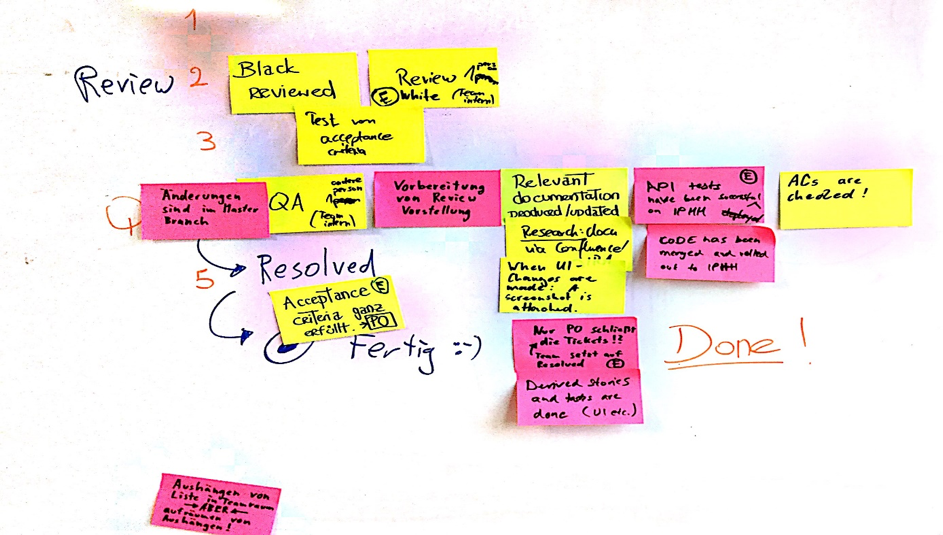 1
Review 2
Black
REVIEWED
Review 1 pers
(E) White (Team
intern)
3
Test von
acceptance
criteria
Änderungen
sind im Master
Branch
QA
andere
person
1
(Team
intern)
Vorbereitung
von Review
Vorstellung
Relevant
documentation
produced/updated
Research: docu
via Confluence/
When UI-
Changes are
made: A
screenshot is
attached.
API tests (E)
have been successful
on IPHH deployed
CODE has been
merged and rolled
out to IPHH
ACs are
checked!
5
Resolved
Acceptance (E)
criteria ganz
erfüllt. → PO
Fertig :-)
Nur PO schließt
die Tickets!?
Team setzt auf
Resolved (E)
Derived stories
and tasks are
done (UI etc.)
Done!
Aushängen von
Liste in Teamraum
→ ABER ←
aufräumen von
Aushängen!